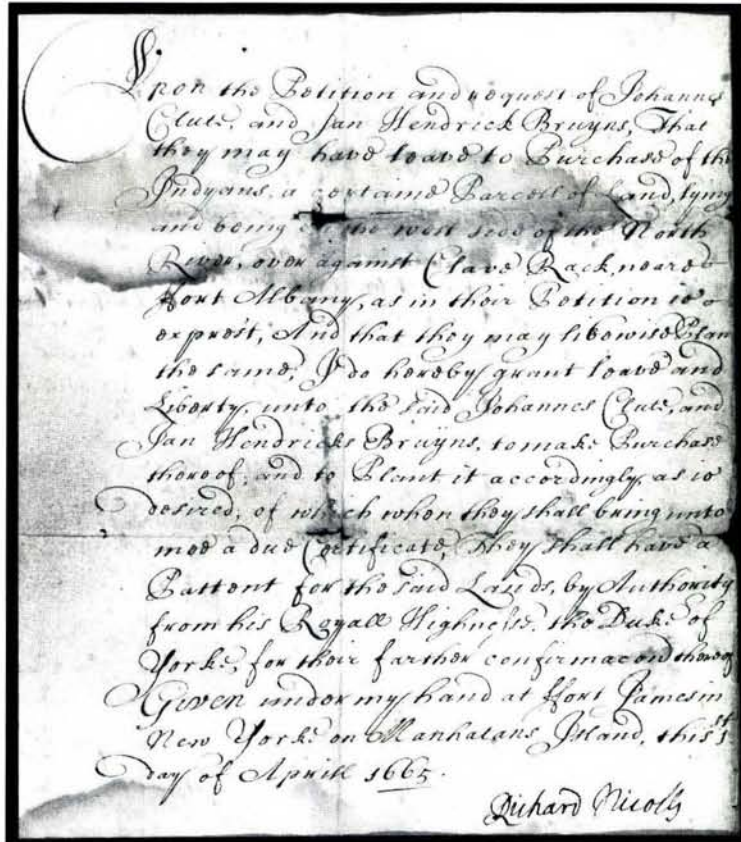 Upon the Petition and request of Johannes
Clute, and Jan Hendrick Bruyns, That
they may have leave to Purchase of the
Indyans, a certaine Parcell of Land, lying
and being on the west side of the North
River, over against Clave Rack, neare
ffort Albany, as in their Petition is
exprest, And that they may likewise Plant
the same, I do hereby grant leave and
Liberty, unto the said Johannes Clute, and
Jan Hendricks Bruyns, to make Purchase
thereof, and to Plant it accordingly, as is
desired, of which when they shall bring unto
mee a due Certificate, They shall have a
Pattent for the said Lands, by Authority
from his Royall Highnesse, the Duke of
Yorke, for their farther confirmacon thereof
Given under my hand at ffort James in
New Yorke on Manhatans Island, this 1st
day of Aprill 1665.
Richard Nicolls